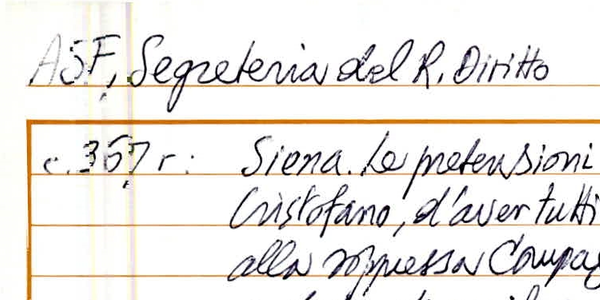 ASF, Segreteria del R. Diritto
c. 357 r: Siena. Le pretensioni
Cristofano, d'aver tutti
alla soppressa